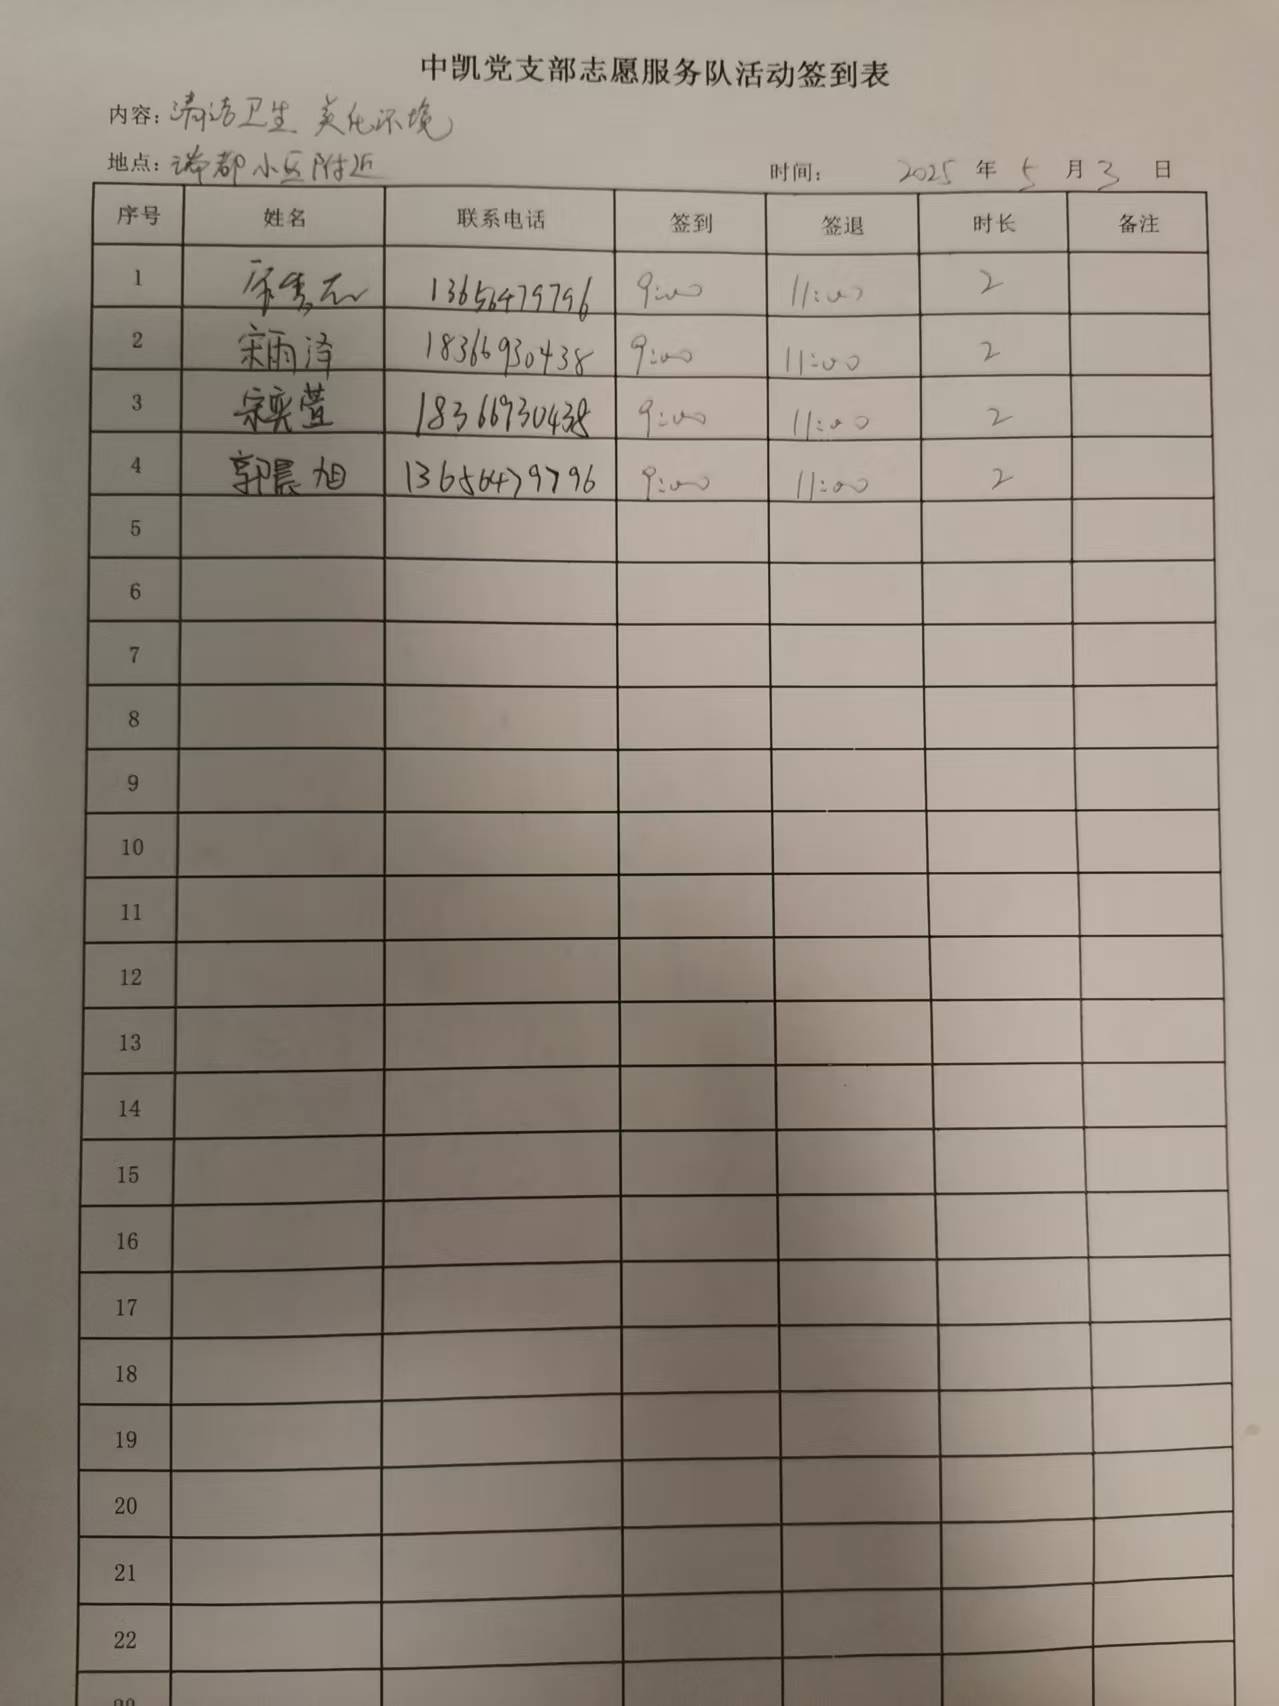 中凯党支部志愿服务队活动签到表
内容：清洁卫生 美化环境
地点：瑞都小区附近 时间： 2025 年 5 月 3 日
序号 姓名 联系电话 签到 签退 时长 备注
1 13656479796 9:00 11:00 2
2 宋雨泽 18366930438 9:00 11:00 2
3 宋奕萱 18366930438 9:00 11:00 2
4 郭晨旭 13656479796 9:00 11:00 2
5
6
7
8
9
10
11
12
13
14
15
16
17
18
19
20
21
22